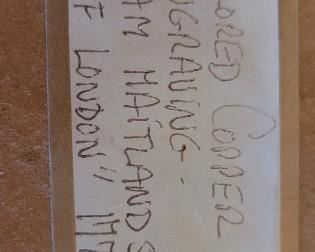 LORED COPPER
GRAVING -
AM MAITLANDS
F LONDON" 177